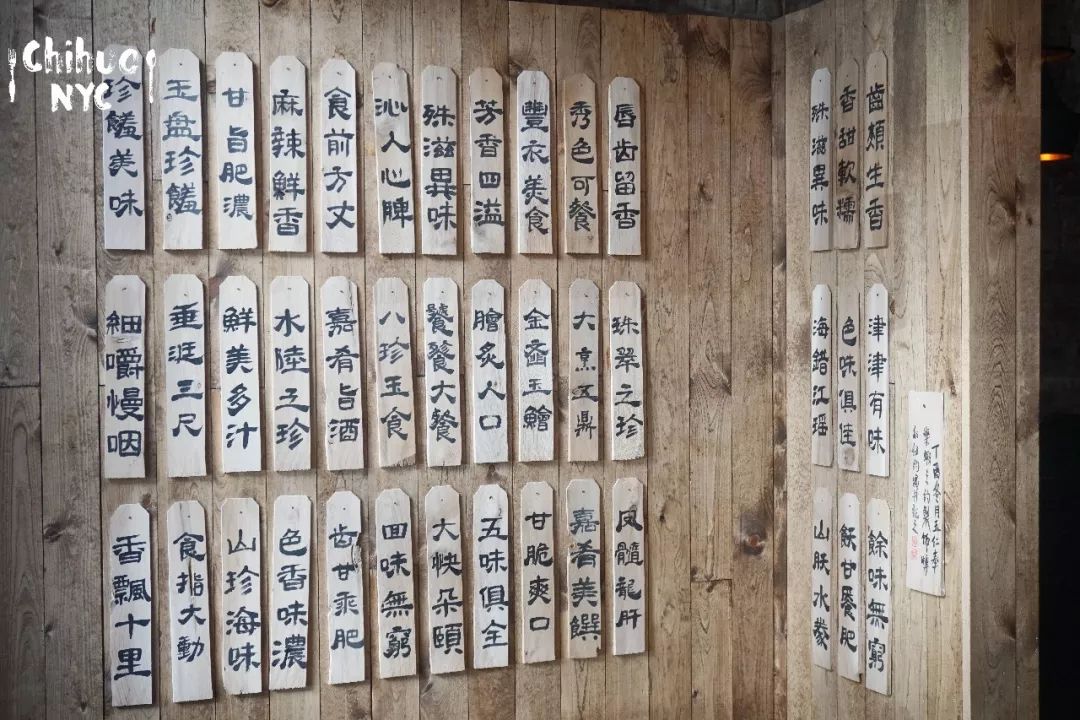 Chihuo
NYC
珍饈美味
玉盘珍饈
甘旨肥濃
麻辣鮮香
食前方丈
沁人心脾
殊滋異味
芳香四溢
豐衣美食
秀色可餐
唇齿留香
殊滋異味
香甜軟糯
齒頰生香
細嚼慢咽
垂涎三尺
鮮美多汁
水陸之珍
嘉肴旨酒
八珍玉食
饕餮大餐
膾炙人口
金齑玉鱠
大烹五鼎
珠翠之珍
海錯江瑶
色味俱佳
津津有味
香飄十里
食指大動
山珍海味
色香味濃
齿甘乘肥
回味無窮
大快朵頤
五味俱全
甘脆爽口
嘉肴美饌
凤髓龍肝
山肤水豢
飫甘饜肥
餘味無窮
丁酉冬月五仁奉